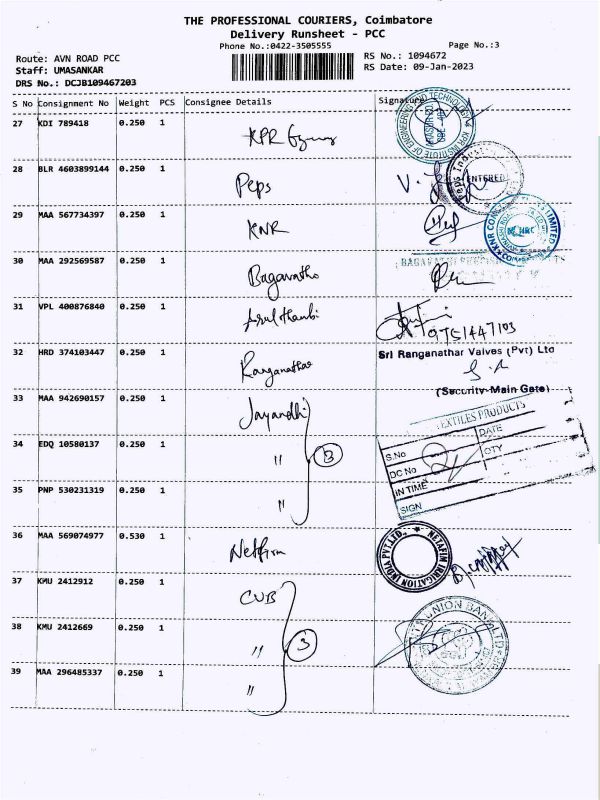 THE PROFESSIONAL COURIERS, Coimbatore
Delivery Runsheet - PCC
Phone No.:0422-3505555
Page No.:3
Route: AVN ROAD PCC
RS No.: 1094672
Staff: UMASANKAR
RS Date: 09-Jan-2023
DRS No.: DCJB109467203
S No Consignment No Weight PCS Consignee Details Signature
27 KDI 789418 0.250 1 KPR
28 BLR 4603899144 0.250 1 Peps ENTERED
29 MAA 567734397 0.250 1 KNR
30 MAA 292569587 0.250 1
31 VPL 400876840 0.250 1
9751447103
32 HRD 374103447 0.250 1 Ranganathar
Sri Ranganathar Valves (Pvt) Ltd
(Security-Main Gate)
33 MAA 942690157 0.250 1
TEXTILES PRODUCTS
S.No DATE
34 EDQ 10580137 0.250 1 " 3
DC No QTY
IN TIME
35 PNP 530231319 0.250 1 "
SIGN
36 MAA 569074977 0.530 1
NETAFIM IRRIGATION INDIA PVT.LTD.
37 KMU 2412912 0.250 1 CUB
38 KMU 2412669 0.250 1 " 3
39 MAA 296485337 0.250 1 "